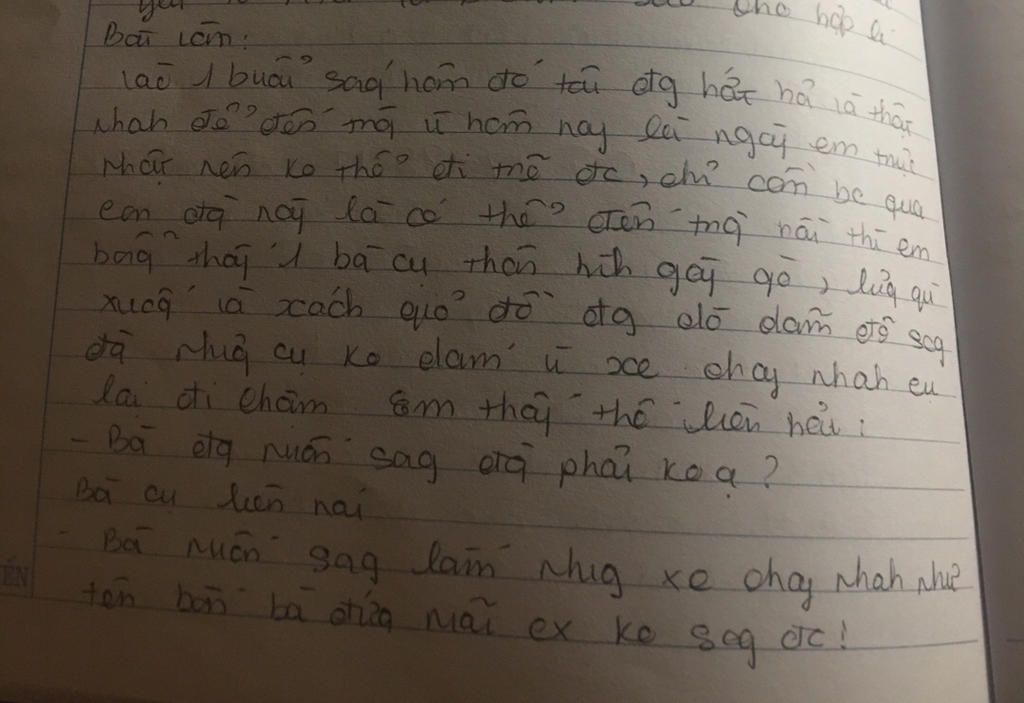 cho hợp lí
Bài làm:
Vào 1 buổi sáng hôm đó tôi đg hớt hả và thật
nhanh để đến trg vì hôm nay là ngày em trực
nhật nên ko thể đi trễ đc, chỉ cần bc qua
con đg này là có thể đến trg rồi thì em
bỗng thấy 1 bà cụ thân hình gầy gò, lưng gù
xuống và xách giỏ đồ đg dò dẫm để sag
đg nhưg cụ ko dám vì xe chạy nhah cụ
lại đi chậm. Em thấy thế liền hỏi:
- Bà đg muốn sag đg phải ko ạ?
Bà cụ liền nói
- Bà muốn sag lắm nhưg xe chạy nhah như
tên bắn bà đứng mãi ko sag đc!